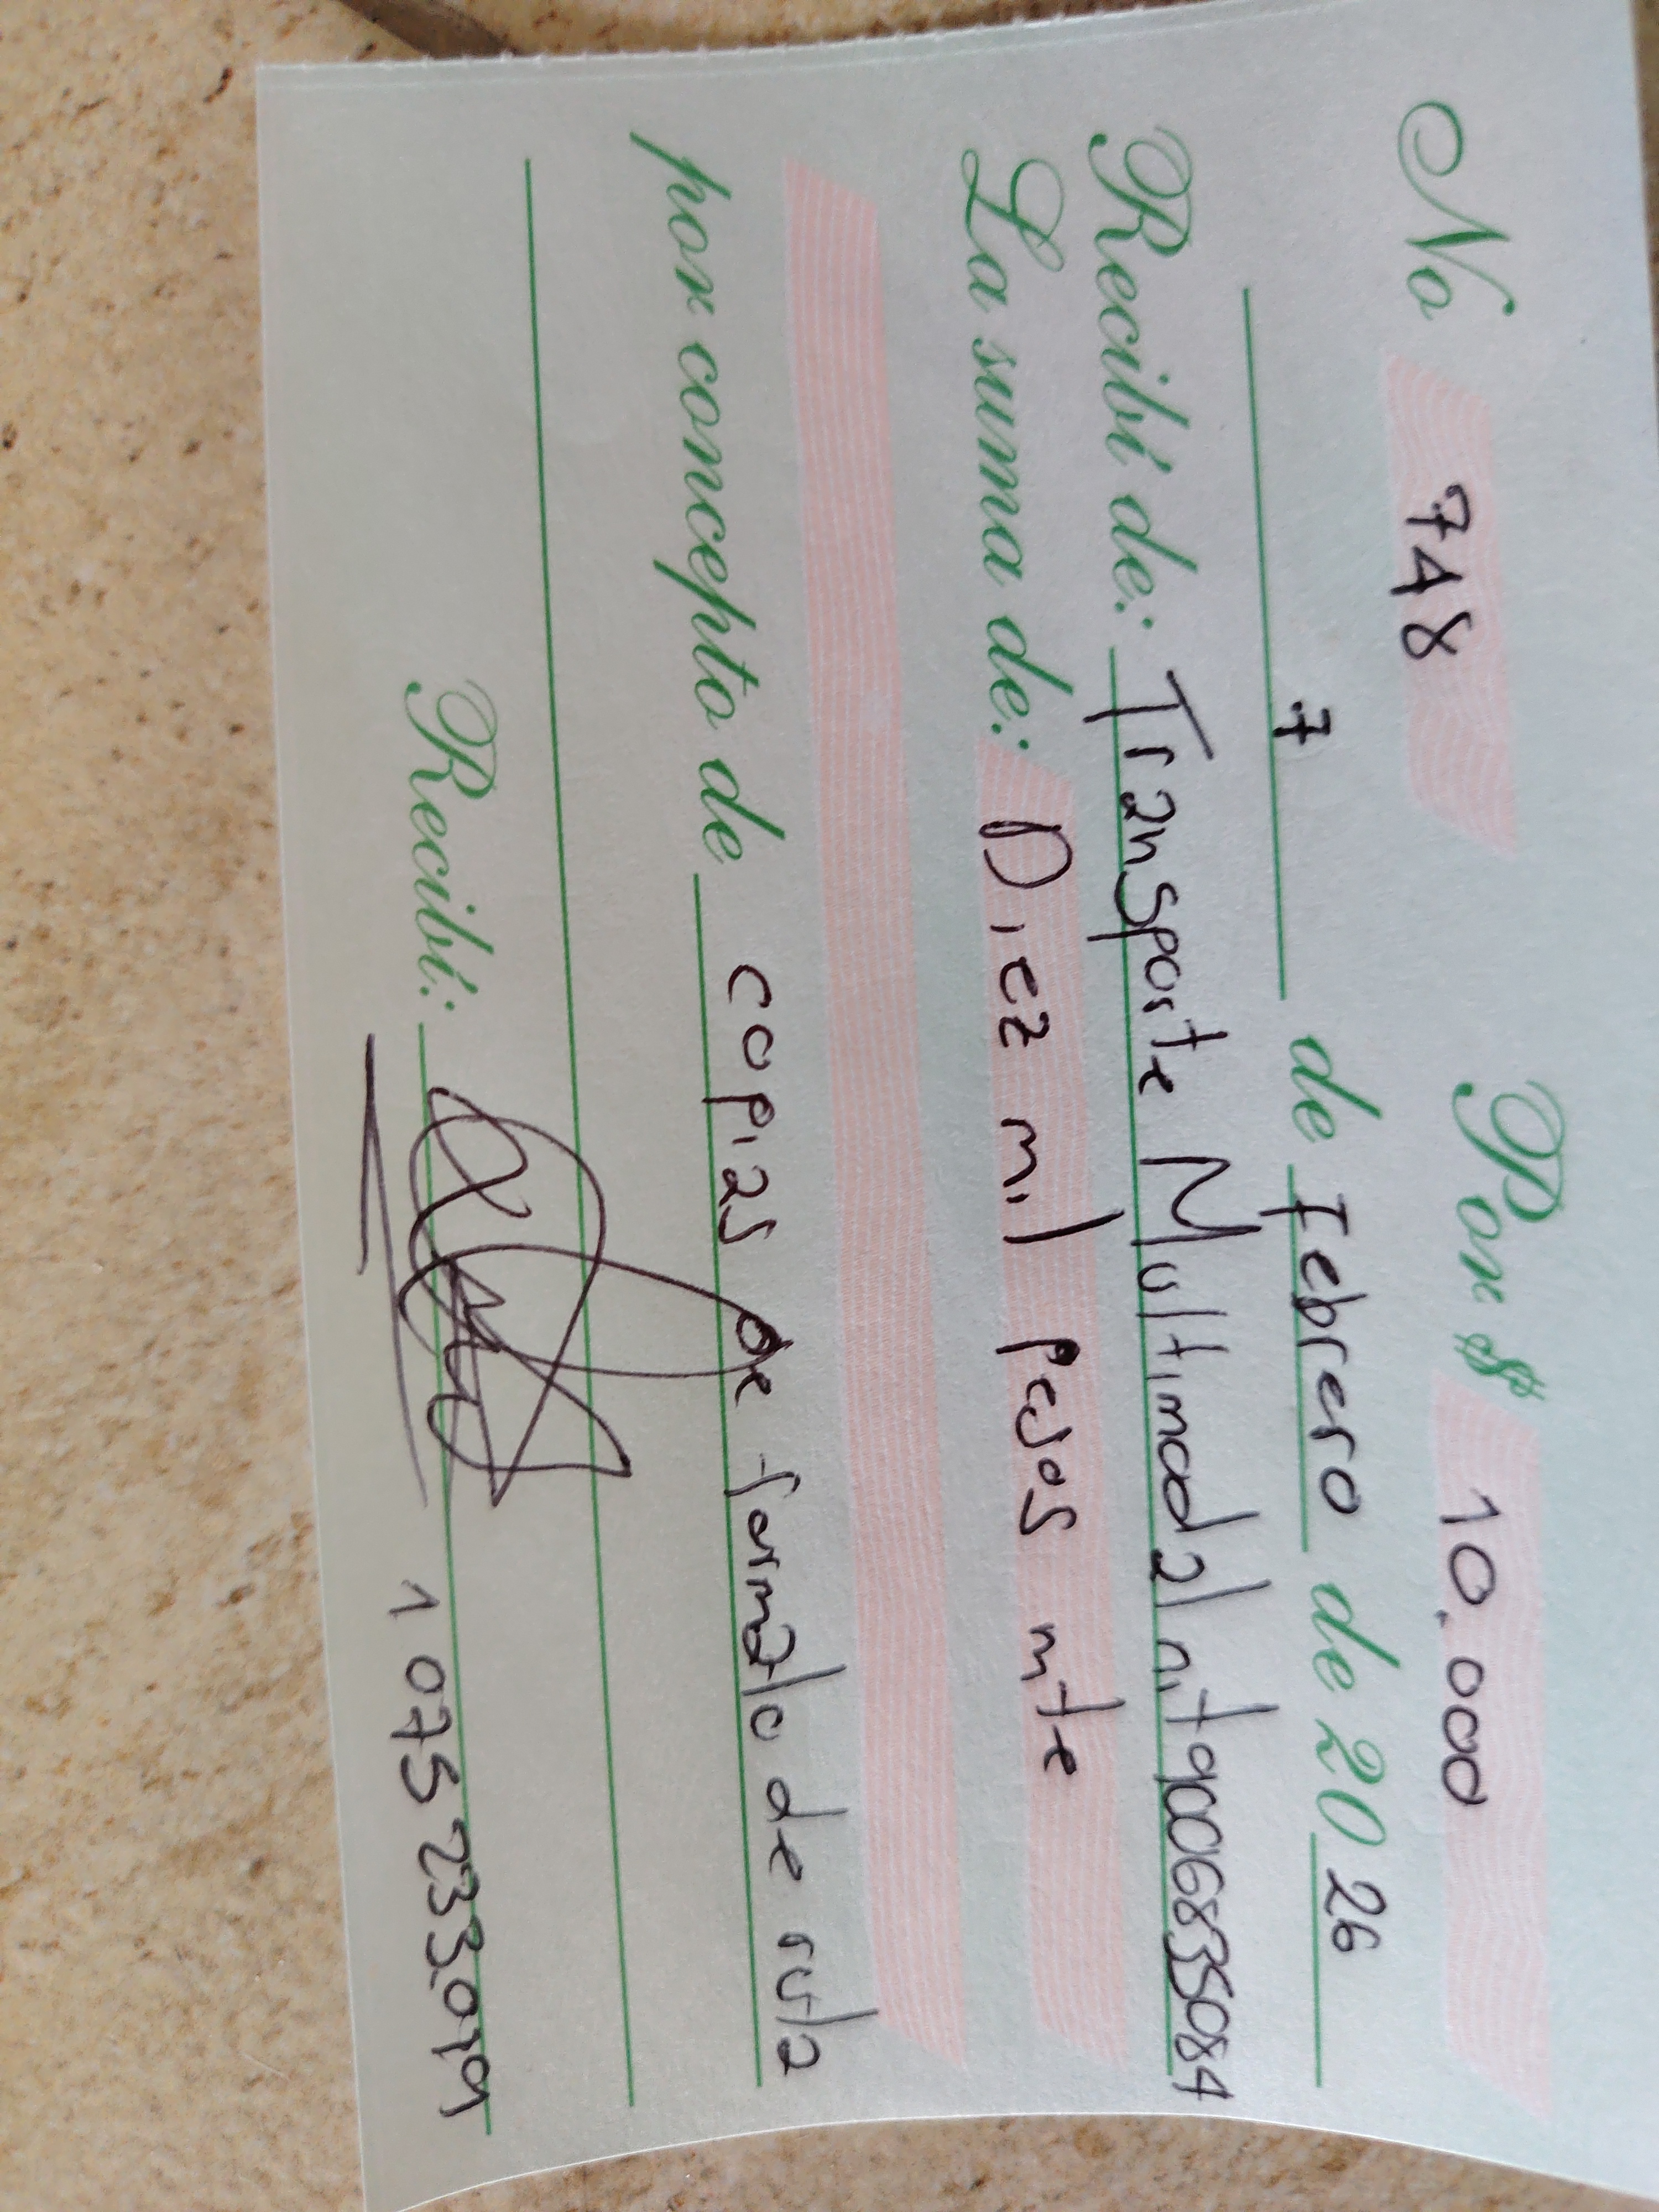 No 748 Por $ 10.000
7 de Febrero de 2026
Recibí de: Transporte Multimodal nit 9006835084
La suma de: Diez mil pesos mte
por concepto de copias de formato de ruta
Recibí: 1 075 233.099